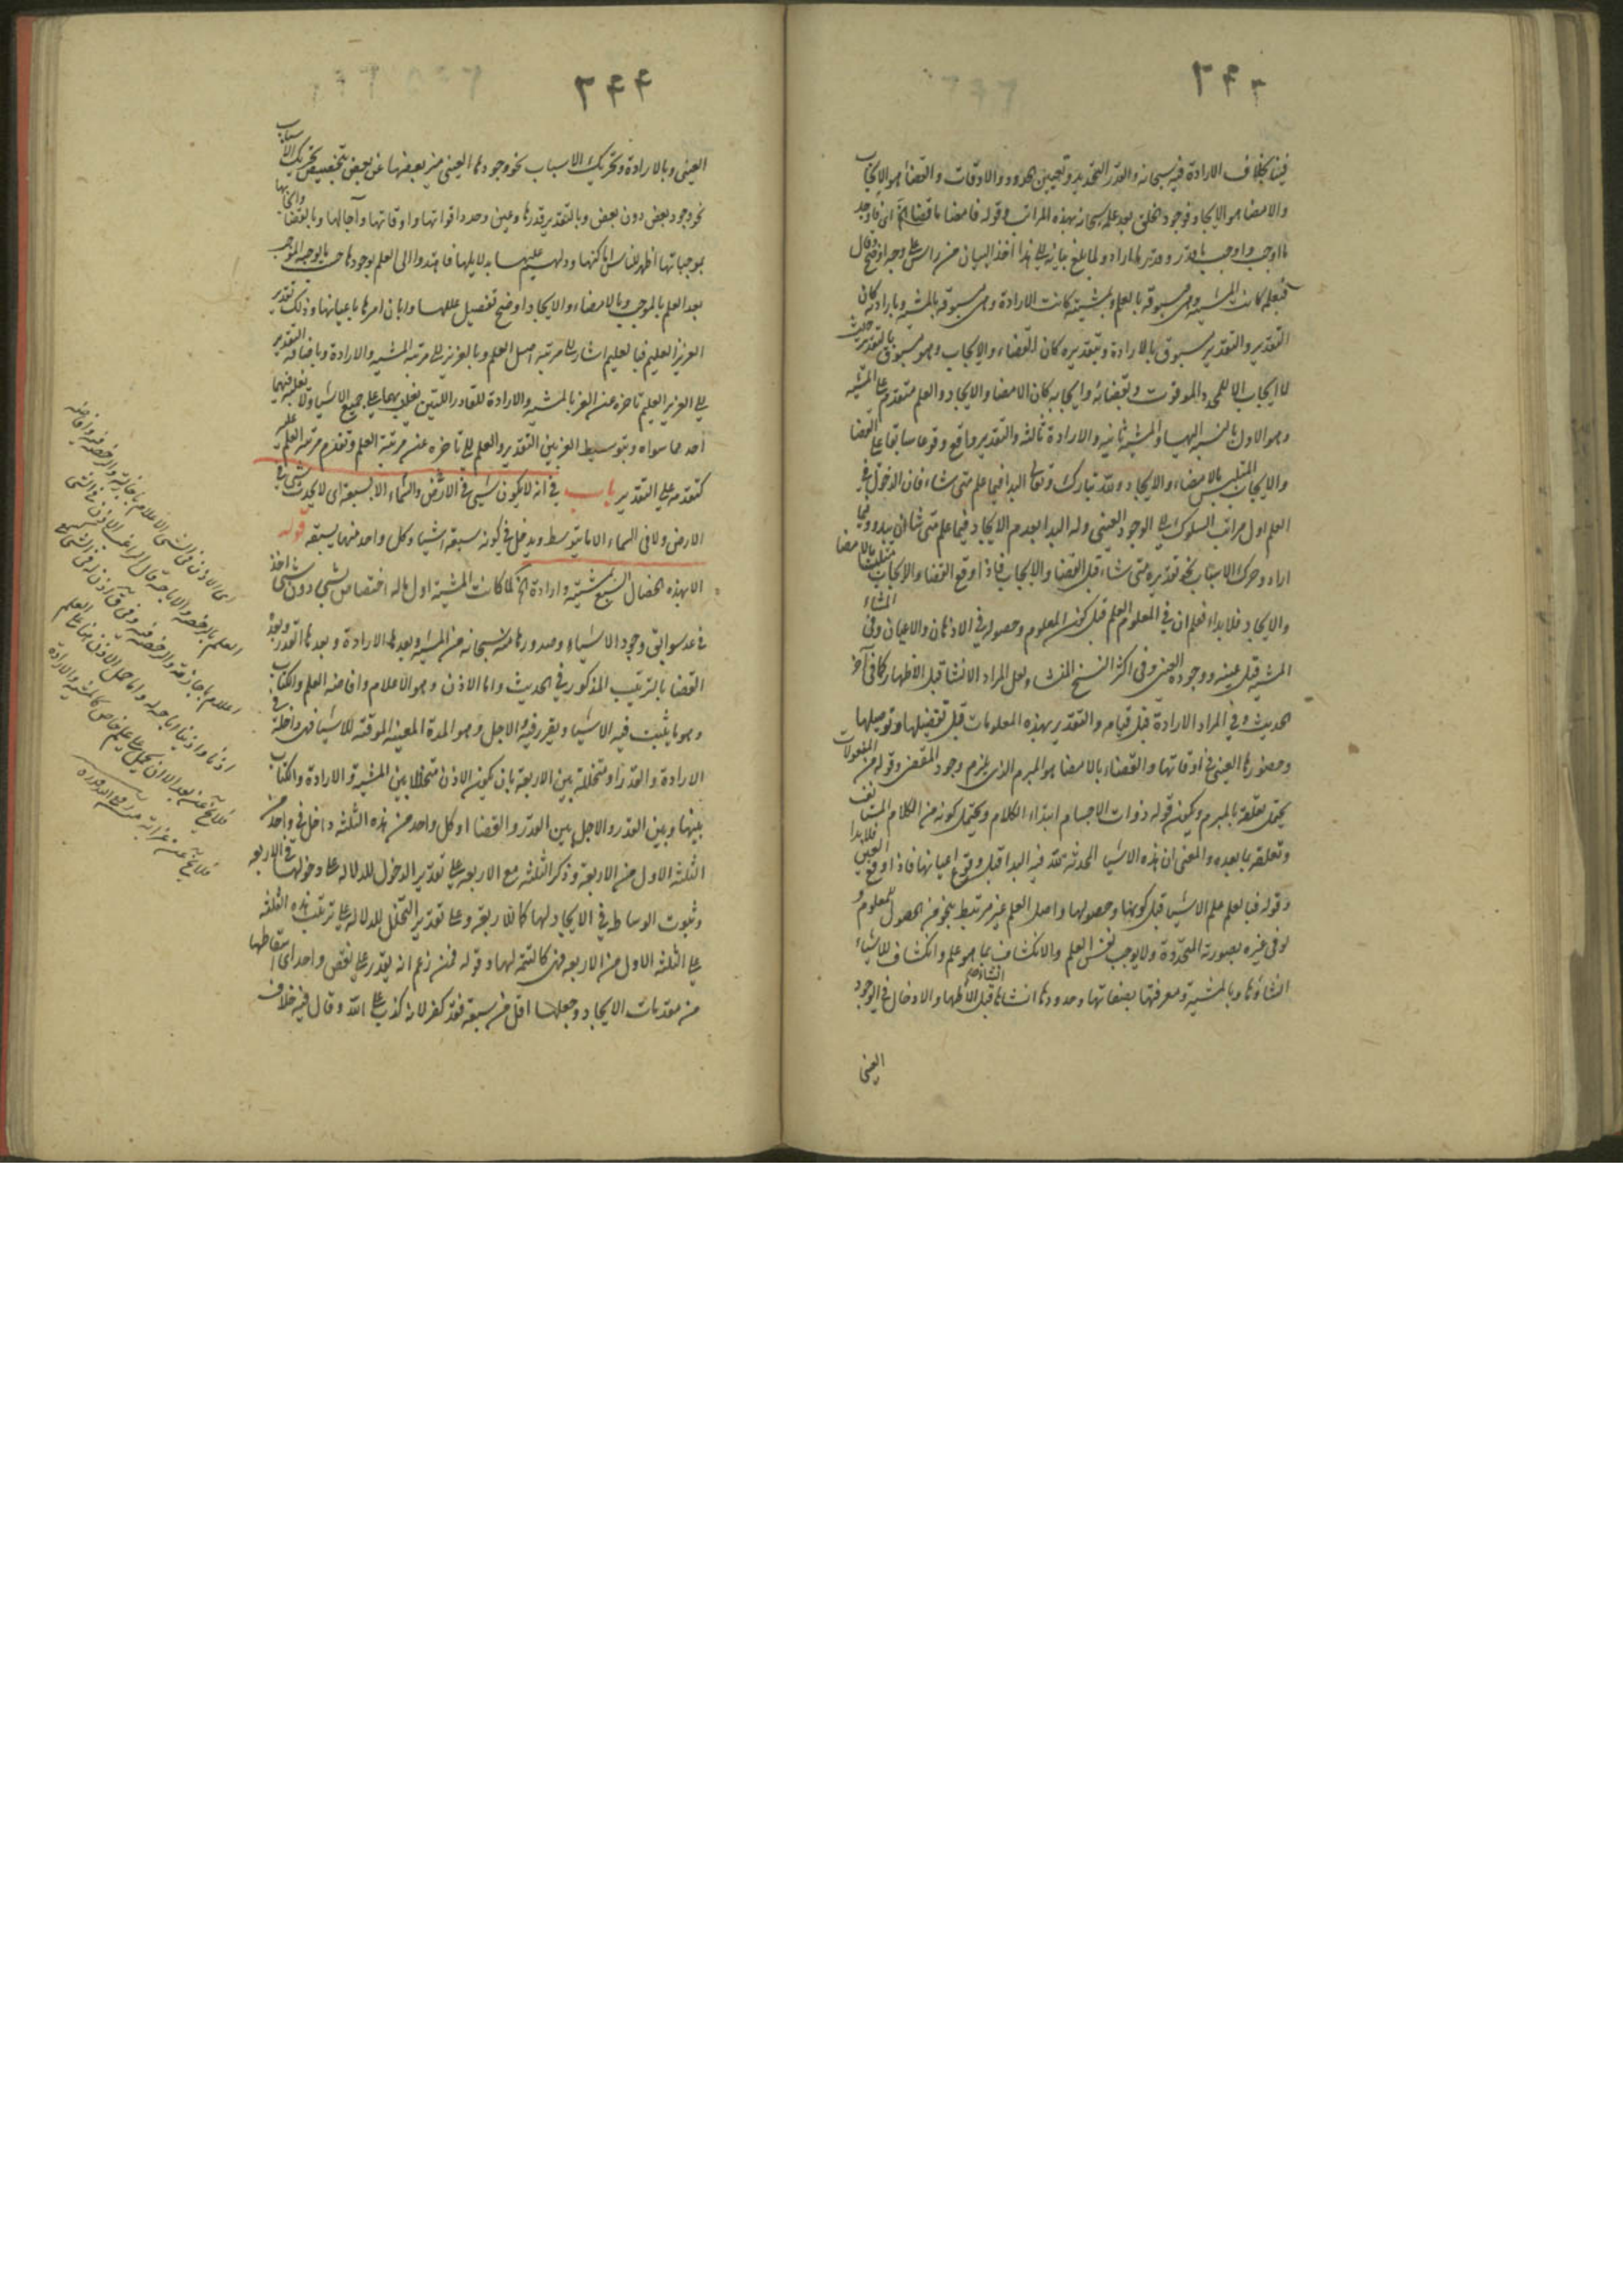 فينا بخلاف الارادة فيه سبحانه والقدر التحديد وتعيين الحدود والاوقات والقضاء هو الايجاب
والامضا هو الايجاد فوجود الخلق بعد علمه سبحانه بهذه المراتب وقوله فامضا ما قضا الخ اى فاوجد
ما اوجب واوجب ما قدر وقدر ما اراد ولما بلغ بيانه الى هذا اخذ البيان من راس على وجه اوضح وقال
فبعلمه كانت المشية وهى مسبوقة بالعلم وبمشيته كانت الارادة وهى مسبوقة بالمشية وبارادته كان
التقدير والتقدير مسبوق بالارادة وبتقديره كان القضاء والايجاب وهو مسبوق بالتقدير حيث
لا ايجاب الا للمحدد والموقوت وبقضائه وايجابه كان الامضا والايجاد والعلم متقدم على المشية
وهو الاول بالنسبة اليها والمشية ثانية والارادة ثالثة والتقدير واقع وقوعا سابقا على القضا
والايجاب المتلبس بالامضاء والايجاد ولله تبارك وتعالى البدا فيما علم متى شاء فان الدخول فى
العلم اول مراتب السلوك الى الوجود العينى وله البدا بعدم الايجاد فيما علم متى شا ان يبدو وفيما
اراد وحرك الاسباب نحو تقديره متى شاء قبل القضا والايجاب فاذا اوقع القضا والايجاب متلبسا بالامضا
والايجاد فلا بداء فعلم ان فى المعلوم العلم قبل كون المعلوم وحصوله فى الاذهان والاعيان وفى المشاء
المشية قبل عينه ووجوده العينى وفى اكثر النسخ المنشاء ولعل المراد الانشا قبل الاظهار كما فى آخر
الحديث وفى المراد الارادة قبل قيامه والتقدير بهذه المعلومات قبل تفصيلها وتوصيلها
وحضورها العينى فى اوقاتها والقضاء بالامضا هو المبرم الذى يلزم وجود المقضى وقوله من المفعولات
يحتمل تعلقه بالمبرم ويكون قوله ذوات الاجسام ابتداء الكلام ويحتمل كونه من الكلام المستانف
وتعلقه بما بعده والمعنى ان هذه الاشيا المحدثة لله فيه البدا قبل وقوع اعيانها فاذا وقع العينى فلا بدا
وقوله فبالعلم علم الاشيا قبل كونها وحصولها واصل العلم غير مرتبط بنحو من الحصول للمعلوم و
لو فى غيره بصورته المتجددة ولا يوجب نفس العلم والانكشاف بما هو علم وانكشاف للاشياء
انشاؤها وبالمشية ومعرفتها بصفاتها وحدودها انشاها انشاء قبل الاظهار والادخال فى الوجود
العينى
العينى وبالارادة وتحريك الاسباب نحو وجودها العينى ميز بعضها عن بعض بتخصيص تحريك الاسباب
نحو وجود بعض دون بعض وبالتقدير قدرها وعين وحدد اقواتها واوقاتها وآجالها وبالقضا وايجابها
بموجباتها اظهر للناس اماكنها ودلهم عليها بدلايلها فاهتدوا الى العلم بوجودها حسب ما يوجبه الموجب
بعد العلم بالموجب وبالامضاء والايجاد اوضح تفصيل عللها وابان امرها باعيانها وذلك تقدير
العزيز العليم فبالعليم اشار الى مرتبة اصل العلم وبالعزيز الى مرتبة المشية والارادة وباضافة التقدير
الى العزيز العليم تاخره عن العز بالمشية والارادة للقادر اللتين يغلب بهما على جميع الاشيا ولا يغلبه فيهما
احد مما سواه وبتوسيط العز بين التقدير والعلم الى تاخره عن مرتبة العلم وتقدم مرتبة العلم عليه
كتقدمه على التقدير باب فى انه لا يكون شىء فى الارض والسماء الا بسبعة اى لا يحدث شىء فى
الارض ولا فى السماء الا ما يتوسط ويدخل فى كونه سبقة اشياء وكل واحد منها يسبقه قوله
الا بهذه الخصال السبع بمشية وارادة الخ لما كانت المشية اول ما له اختصاص بشىء دون شىء اخذ
فى عد سوابق وجود الاشياء وصدورها منه سبحانه من المشية وبعدها الارادة وبعدها القدر وبعده
القضا بالترتيب المذكور فى الحديث واما الاذن وهو الاعلام وافاضة العلم والكتاب
وهو ما يثبت فيه الاشيا ويقرر فيه والاجل وهو المدة المعينة الموقتة للاشيا فهى داخلة فى
الارادة والقدر او متخللة بين الاربعة بان يكون الاذن متخللا بين المشية والارادة والكتاب
بينها وبين القدر والاجل بين القدر والقضا او كل واحد من هذه الثلثة داخل فى واحد من
الثلثة الاول من الاربعة وذكر الثلثة مع الاربعة على تقدير الدخول للدلالة على دخولها فى الاربعة
وثبوت الوساطة فى الايجاد لها كالاربعة وعلى تقدير التخلل للدلالة على ترتب هذه الثلثة
على الثلثة الاول من الاربعة فهى كالتتمة لها وقوله فمن زعم انه يقدر على نقص واحد اى اسقاطها
من مقدمات الايجاد وجعلها اقل من سبعة فقد كفر لانه كذب على الله وقال فيه خلاف
اى الاذن فى الشىء الاعلام باجازته والرخصة فيه وافاضة
العلم بالرخصة والاباحة قال الراغب الاذن فى الشىء
اعلام باجازته والرخصة فيه وفى ق اذن له فى الشىء كسمع
اذنا واذينا اباحه له واما حمل الاذن هنا على العلم